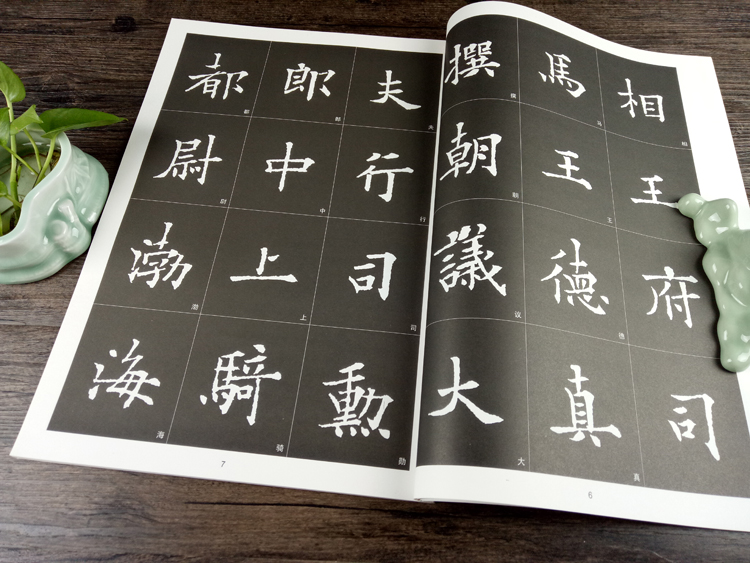 相王府司
相
馬王德真
马王德真
撰朝議大
撰朝议大
6
夫行司勳
夫行司勋
郎中上騎
郎中上骑
都尉渤海
都尉渤海
7